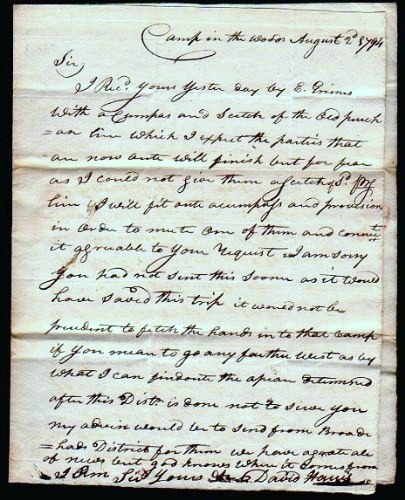 Camp in the Woods August 2d 1794
Sir
I Recd. yours yester day by E. Grims
with a Cumpas and Scetch of the old purch
=as line which I expect the parties that
are now oute will finish but for fear
as I could not give them a Scetch of Sd.
line I will fit oute a cumpass and provision
in order to mete one of them and
it agreable to your Request I am sory
you had not sent this sooner as it would
have saved this trip it would not be
prudent to fetch the hands in to that Camp
if you mean to go any farther west as by
what I can findoute the apear detirmned
after this Distt. is done not to sarve you
my advice would be to send from Broade
=heds District for them we have agrate deal
of news but god knows where it comes from
I Am Sir Yours David